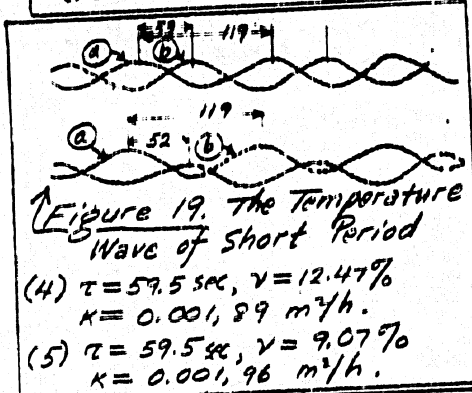 59 119
a b
119
a 52 b
Figure 19. The Temperature
Wave of Short Period
(4) τ = 59.5 sec, ν = 12.47%
κ = 0.001, 89 m²/h.
(5) τ = 59.5 sec, ν = 9.07%
κ = 0.001, 96 m²/h.